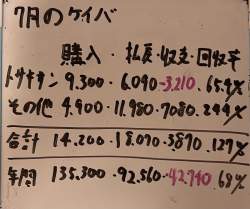 7月のケイバ
購入・払戻・収支・回収率
トサキン 9.300・6.090 -3.210.65.4%
その他 4.900・11.980・7080.244%
合計 14.200・18.070・3870.127%
年間 135.300・92.560・-42.740.68%